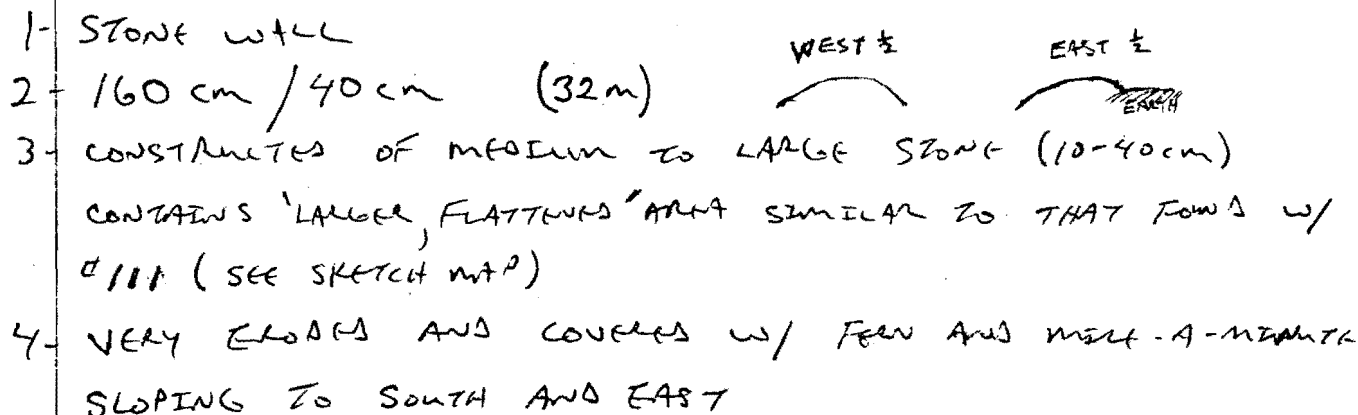 1- STONE WALL
WEST ½ EAST ½
2- 160 cm / 40 cm (32m)
EARTH
3- CONSTRUCTED OF MEDIUM TO LARGE STONE (10-40cm)
CONTAINS 'LARGER, FLATTENED' AREA SIMILAR TO THAT FOUND w/
#111 (SEE SKETCH MAP)
4- VERY ERODED AND COVERED w/ FERN AND MILE-A-MINUTE
SLOPING TO SOUTH AND EAST